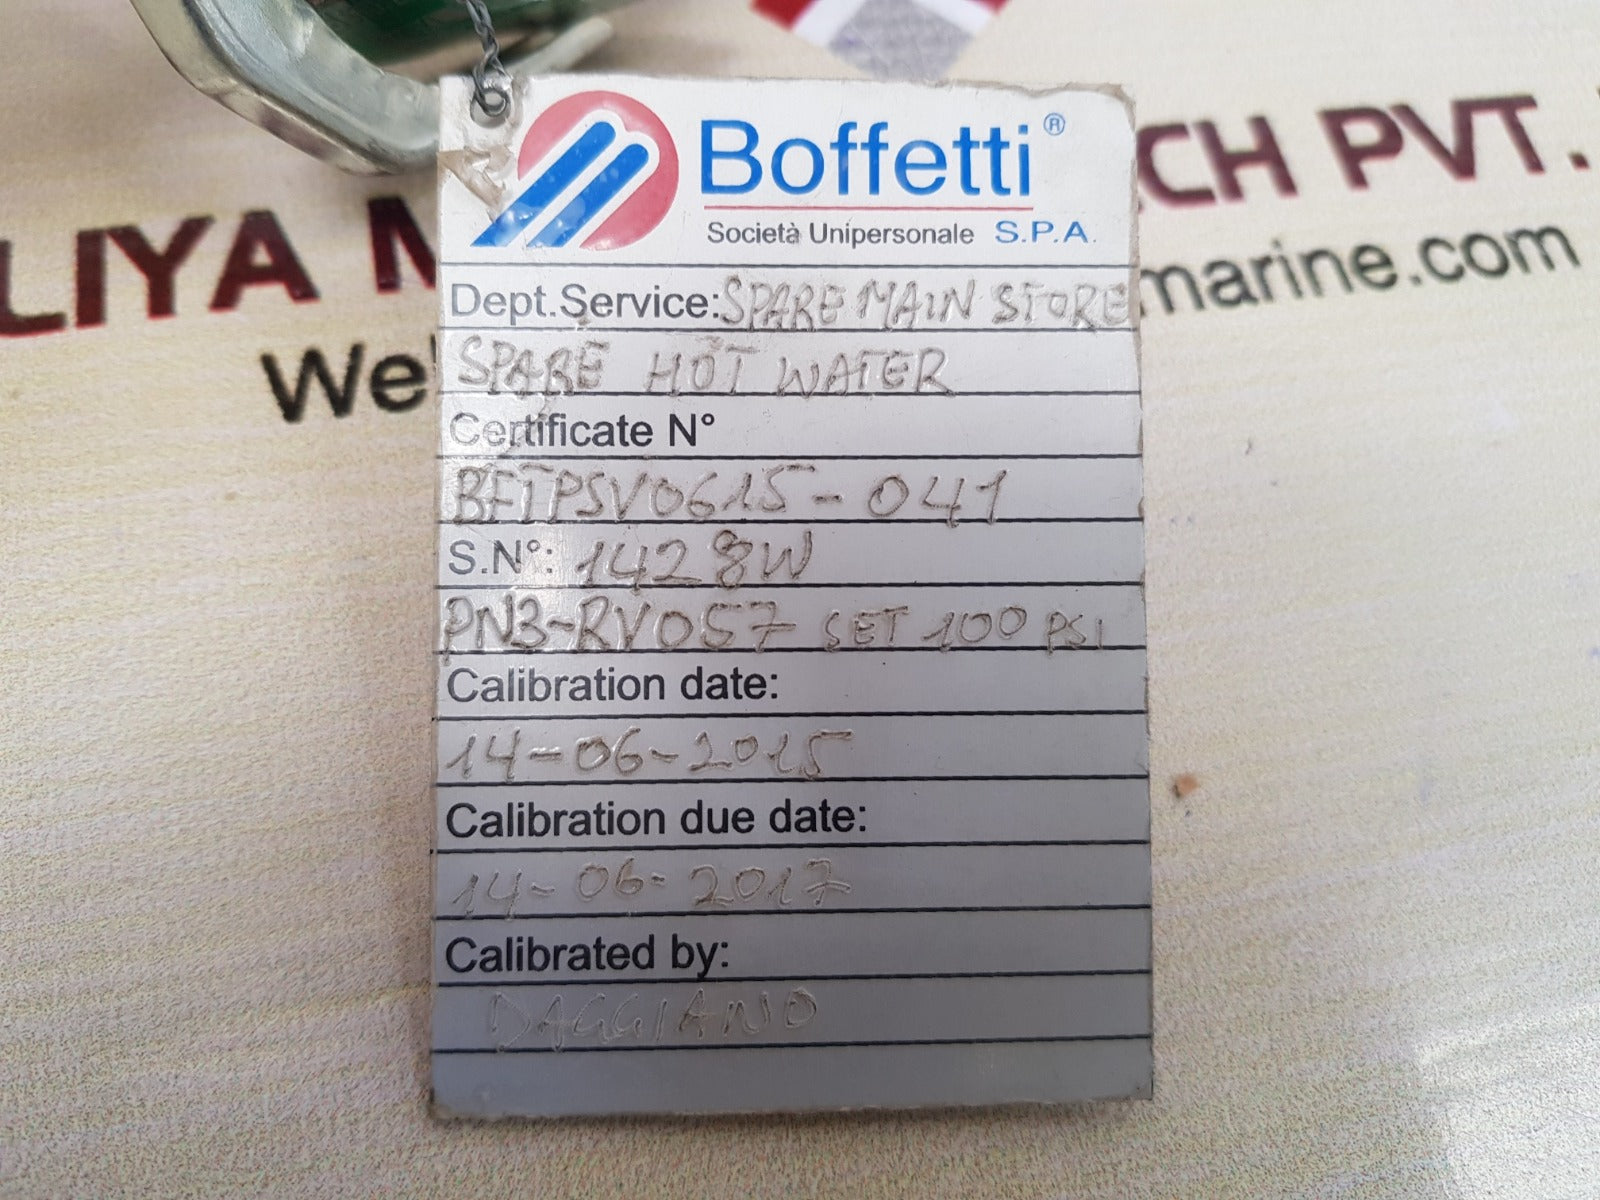 Boffetti®
Società Unipersonale S.P.A.
Dept.Service: SPARE MAIN STORE
SPARE HOT WATER
Certificate N°
BFTPSV0615-041
S.N°: 1428 8W
PN3-RV057 SET 100 PSI
Calibration date:
14-06-2015
Calibration due date:
14-06-2017
Calibrated by:
DAGGIANO
LIYA M CH PVT.
We marine.com